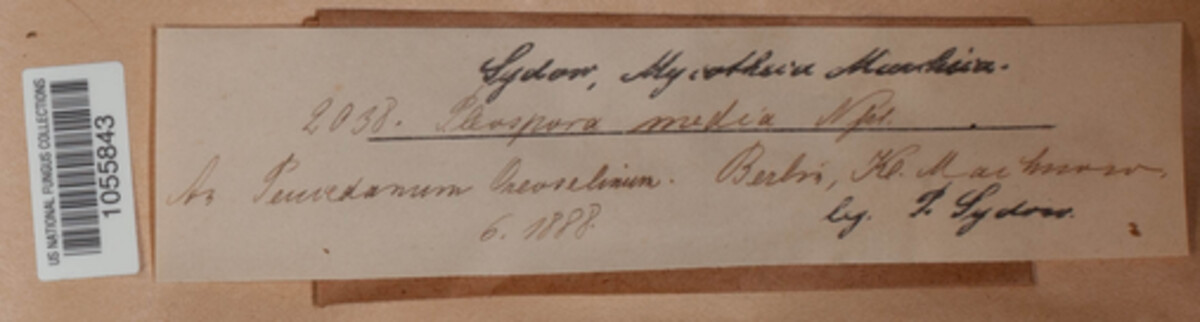 US NATIONAL FUNGUS COLLECTIONS
1055843
Sydow, Mycotheca Marchica.
2038. Pleospora media Npl.
An Peucedanum Oreoselinum. Berlin, Kl. Machnow.
6. 1888. leg. P. Sydow.